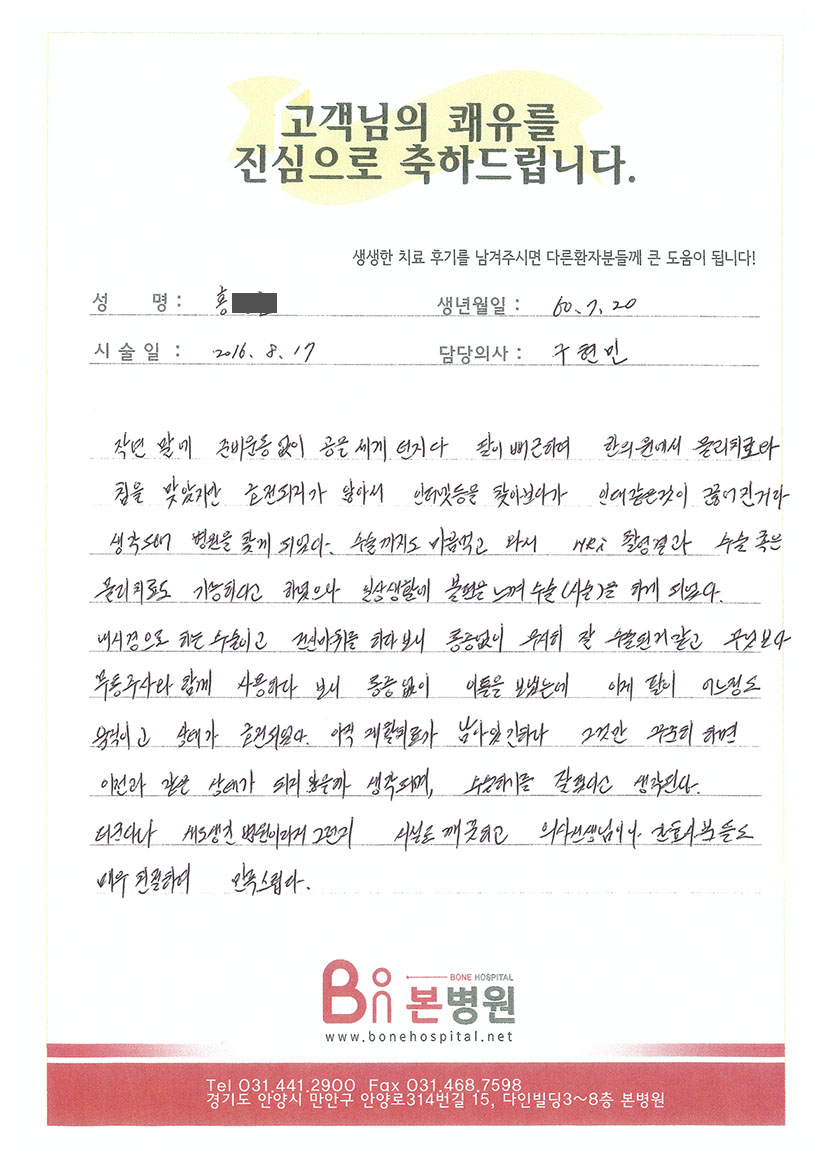 고객님의 쾌유를
진심으로 축하드립니다.
생생한 치료 후기를 남겨주시면 다른환자분들께 큰 도움이 됩니다!
성 명 : 홍
생년월일 : 60. 7. 20
시 술 일 : 2016. 8. 17
담당의사 : 구현민
작년 말에 준비운동없이 공을 세게 던지다 팔이 뻐근하여 한의원에서 물리치료와
침을 맞았지만 호전되지가 않아서 인터넷등을 찾아보다가 인대같은것이 끊어진거라
생각되어 병원을 찾게 되었다. 수술까지도 마음먹고 와서 MRi 촬영결과 수술 혹은
물리치료도 가능하다고 하였으나 일상생활에 불편을 느껴 수술(시술)을 하게 되었다.
내시경으로 하는 수술이고 전신마취를 하다보니 통증없이 무사히 잘 수술된거 같고 무엇보다
무통주사와 함께 사용하다 보니 통증없이 이틀을 보냈는데 이제 팔이 어느정도
움직이고 상태가 호전되었다. 아직 재활치료가 남아있긴하나 그것만 꾸준히 하면
이전과 같은 상태가 되지 않을까 생각되며, 수술하기를 잘했다고 생각된다.
더군다나 새로생긴 병원이라서 그런지 시설도 깨끗하고 의사선생님이나 간호사분들도
매우 친절하여 만족스럽다.
Bon
BONE HOSPITAL
본병원
www.bonehospital.net
Tel 031.441.2900 Fax 031.468.7598
경기도 안양시 만안구 안양로314번길 15, 다인빌딩3~8층 본병원